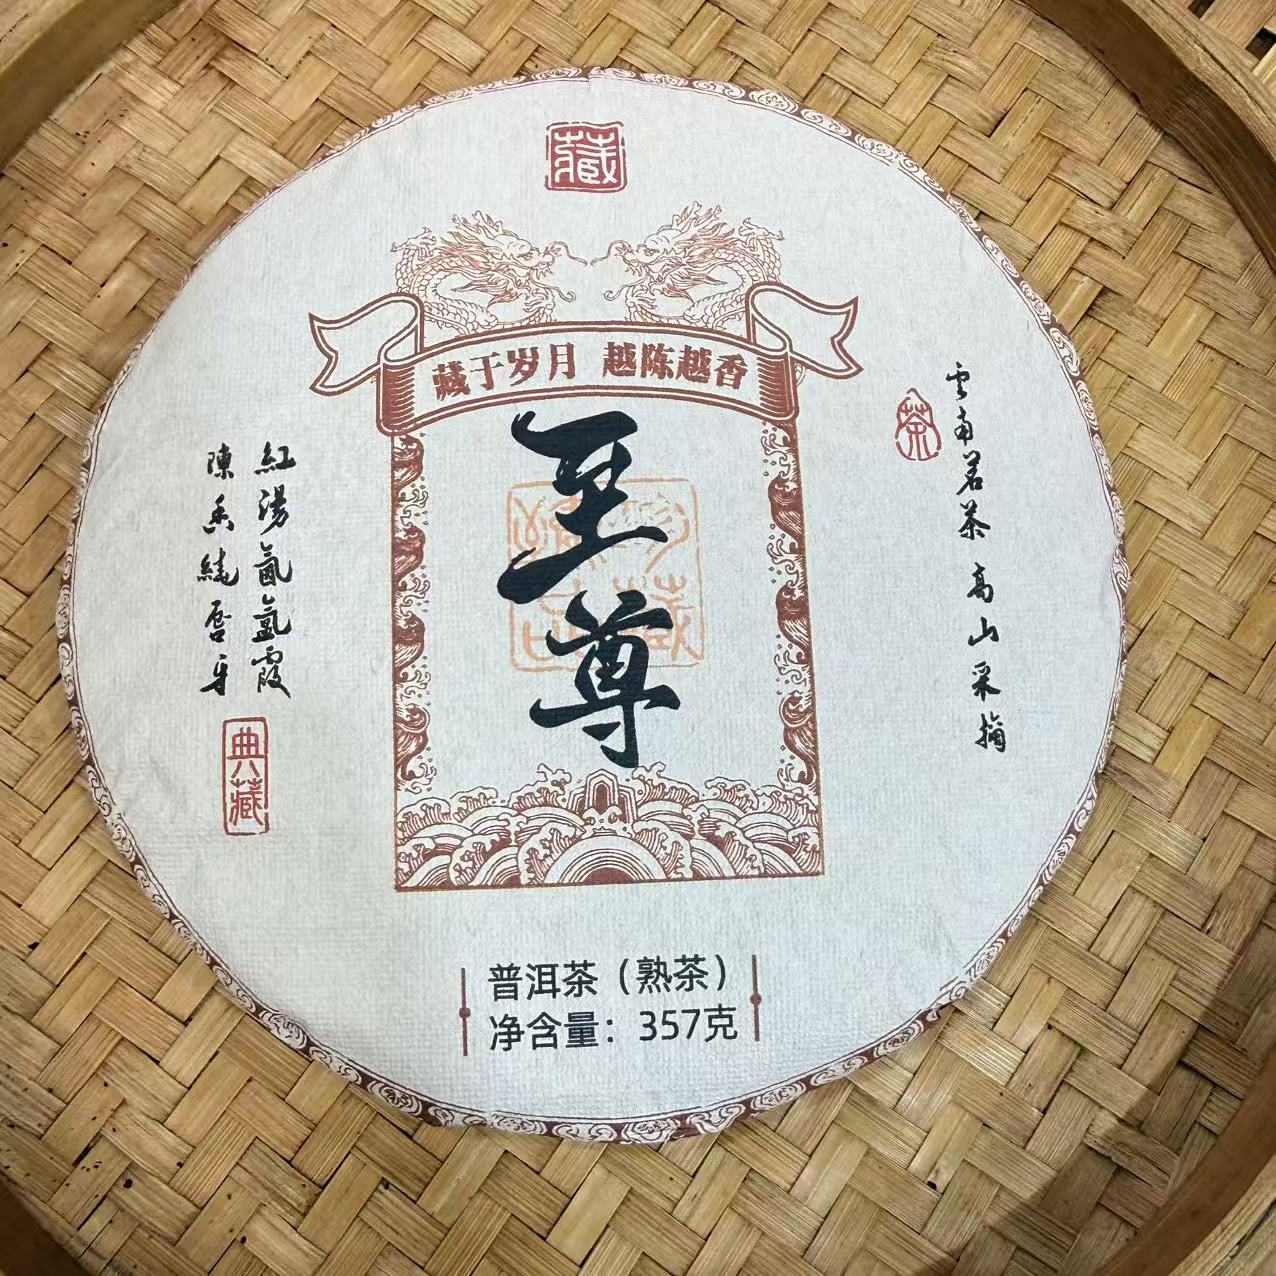 藏
藏于岁月 越陈越香
至尊
云南茗茶高山采摘
茶
紅湯氤氳霞
陳香繞唇牙
典藏
普洱茶（熟茶）
净含量：357克